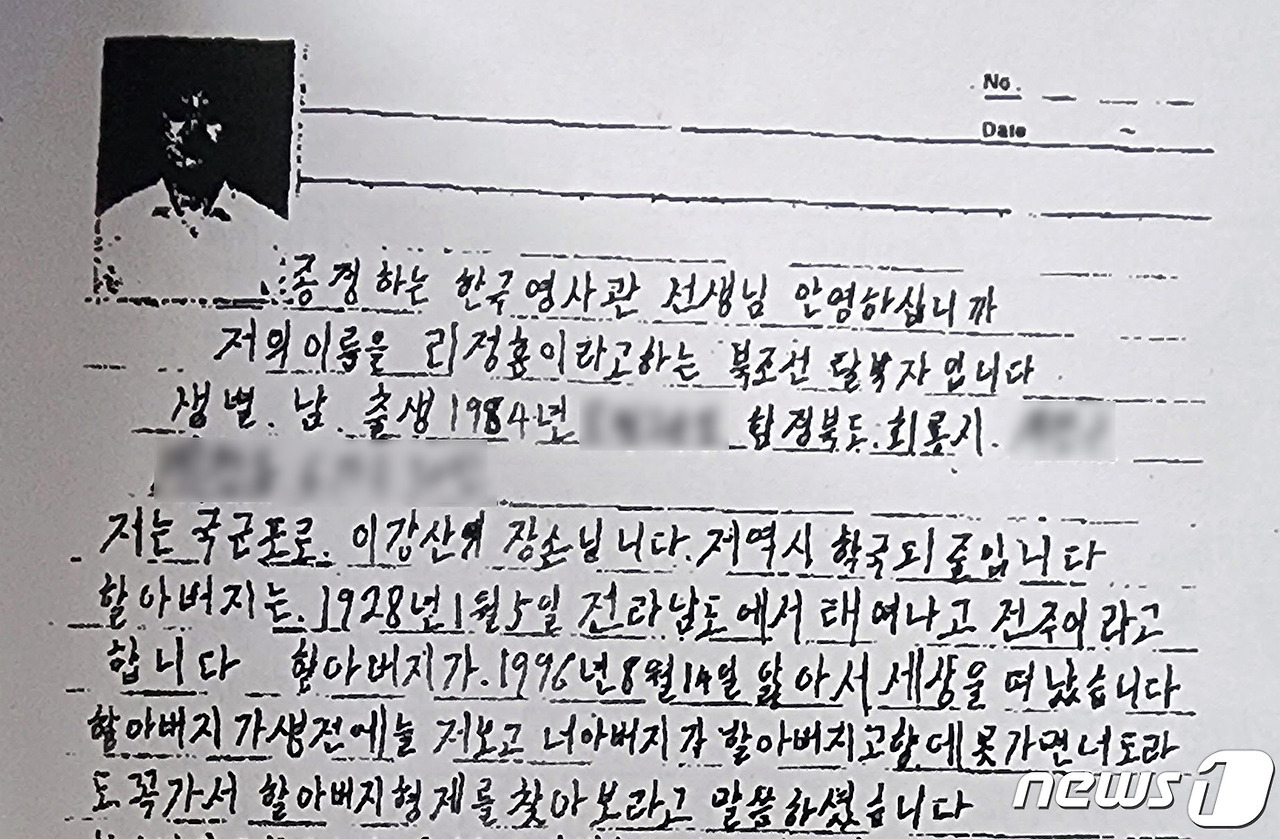 No.
Date
존경하는 한국영사관 선생님 안영하십니까
저의이름을 리정훈이라고하는 북조선 탈북자입니다
생별. 남. 출생 1984년 함경북도. 회룡시.
저는 국군포로. 이강산의 장손님니다. 저역시 한국피줄입니다
할아버지는. 1928년 1월 5일 전라남도에서 태여나고 전주이라고
합니다 한아버지가. 1996년 8월 14일 앓아서 세상을 떠났습니다
할아버지가생전에늘 저보고 너아버지가 할아버지고향에 못가면너도라
도 꼭가서 할아버지형제를 찾아보라고 말씀하셨습니다
news1